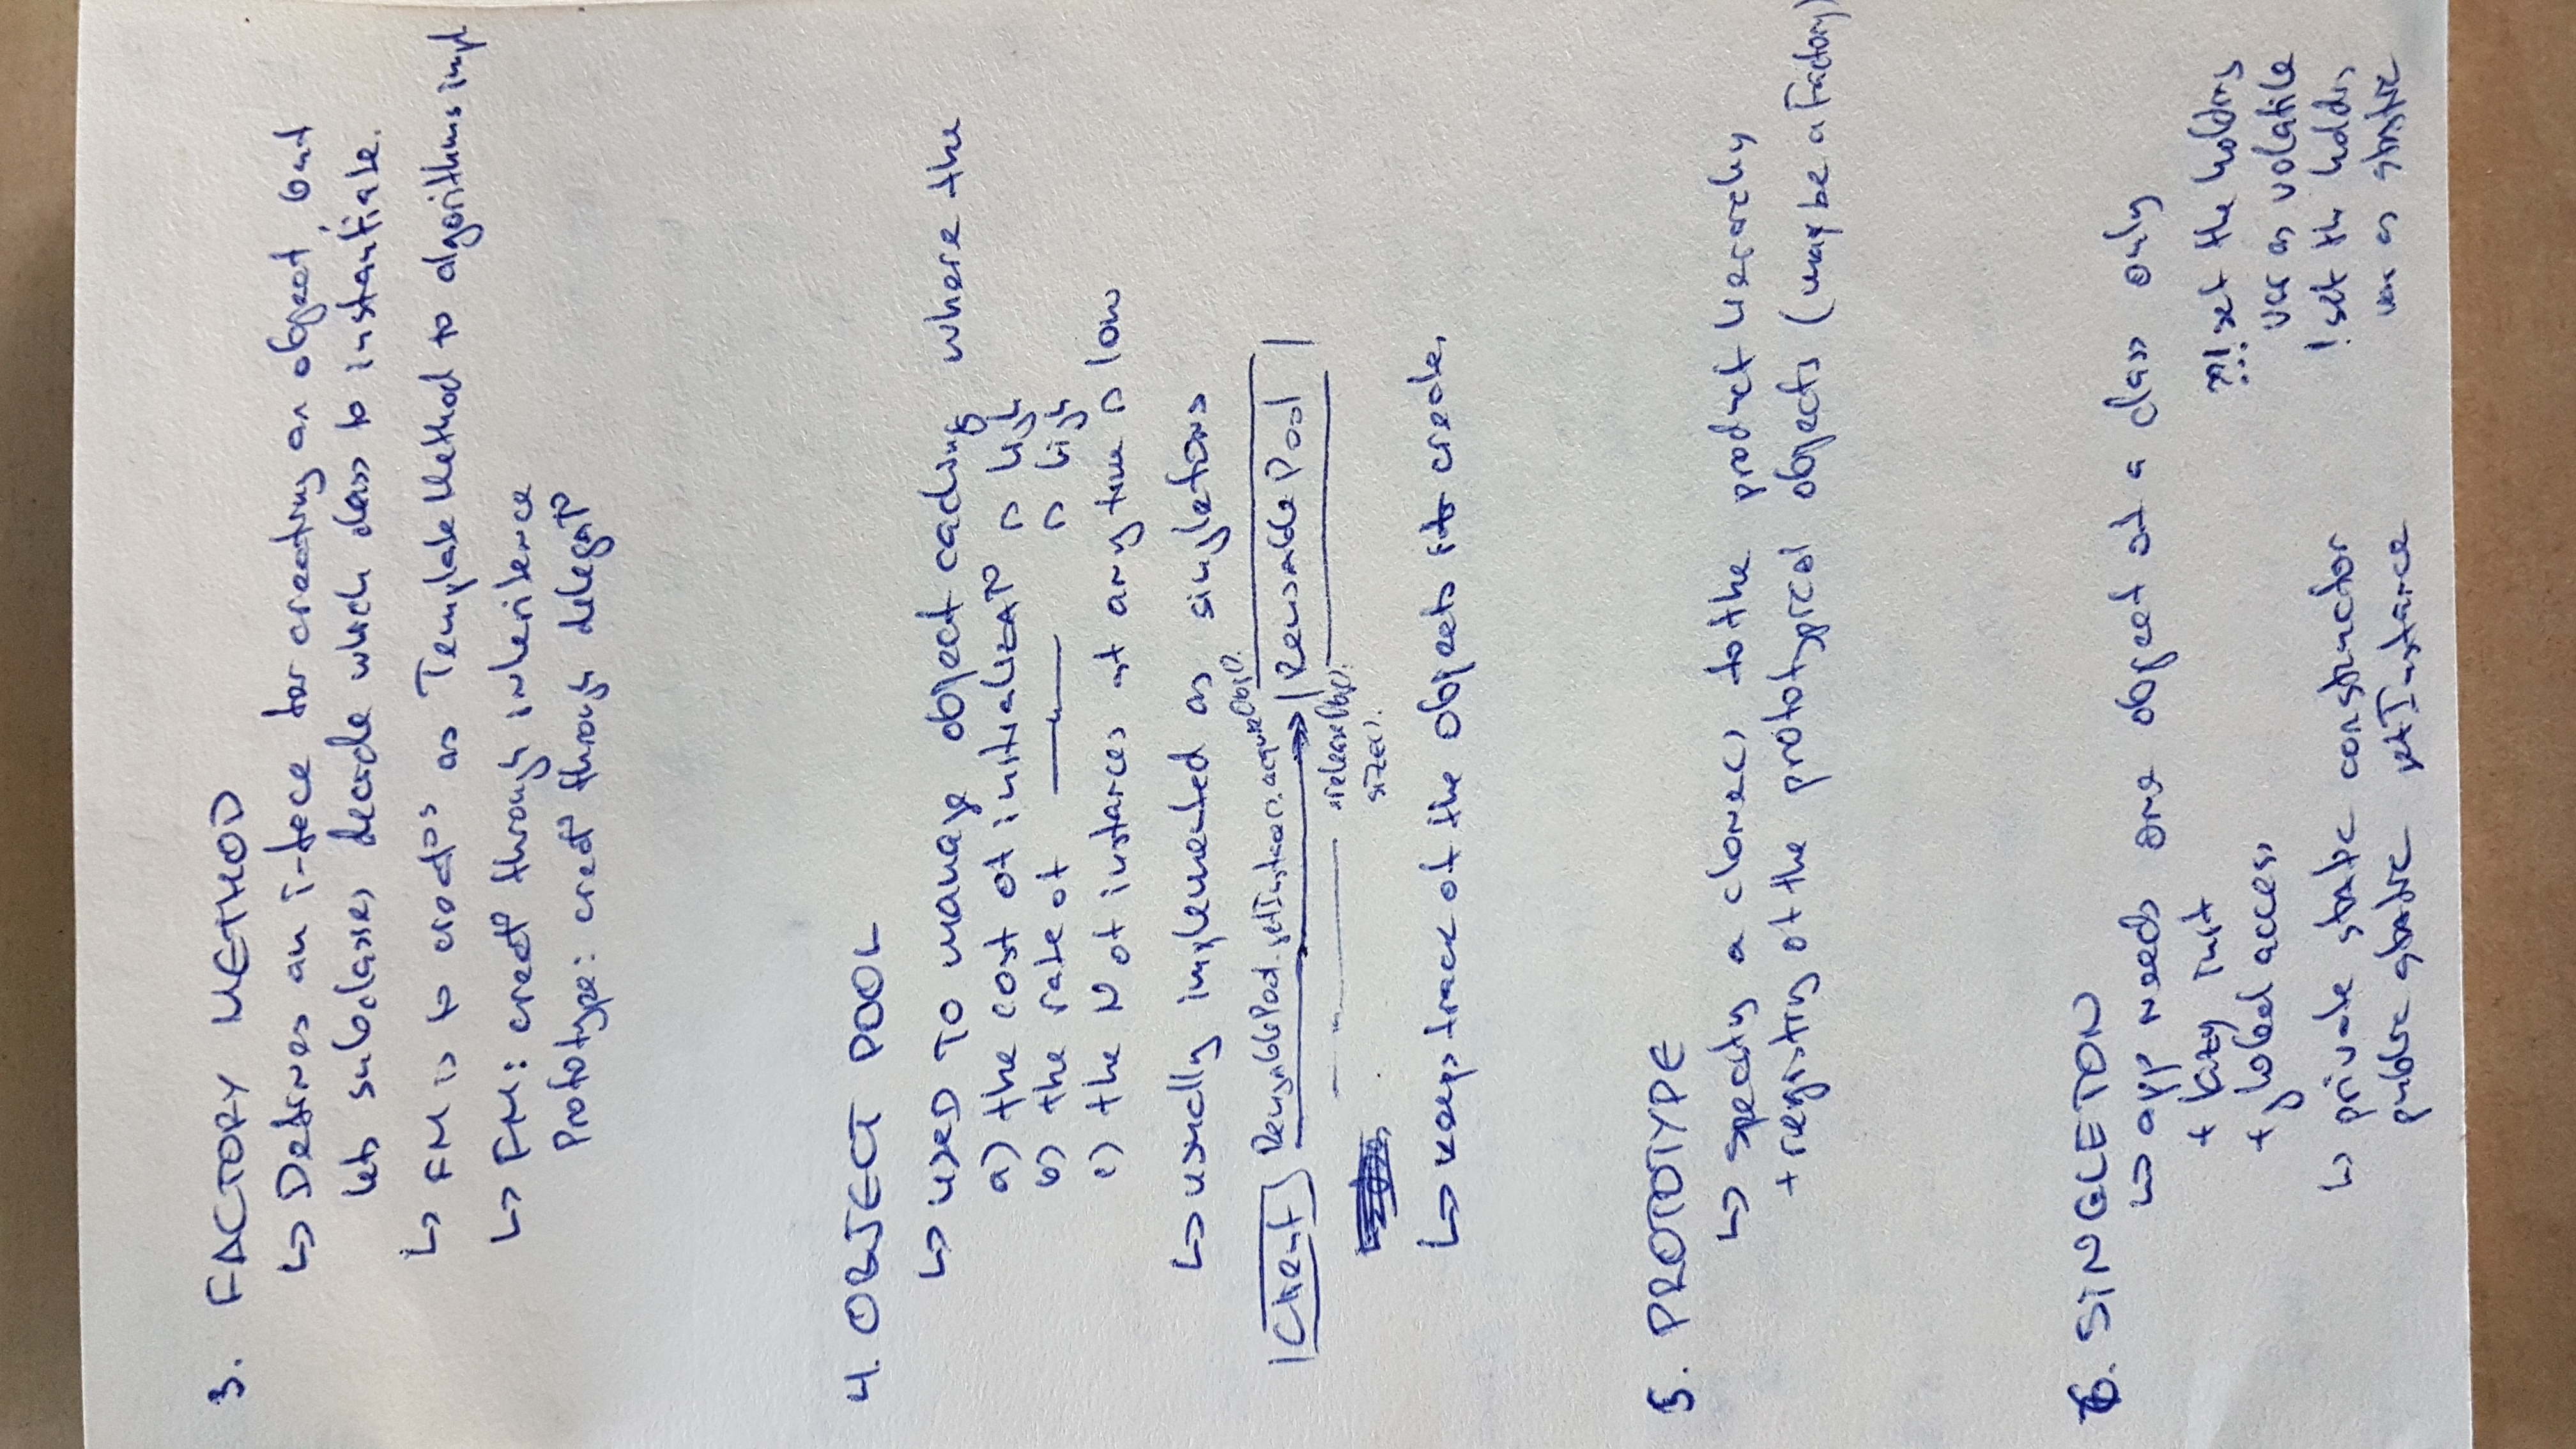 3. FACTORY METHOD
↳ Defines an i-face for creating an object, but
lets subclasses decide which class to instantiate.
↳ FM is to creat°s as Template Method to algorithms impl
↳ FM: creat° through inheritence
Prototype: creat° through delegat°
4. OBJECT POOL
↳ USED TO manage object caching where the
a) the cost of initializat° is high
b) the rate of —〃— is high
c) the N of instances at any time is low
↳ usually implemented as singletons
Client ReusablePool.getInstance().acquireObj(). ReusablePool
—〃— .releaseObj().
size().
↳ keeps track of the objects it creates
5. PROTOTYPE
↳ specify a clone() to the product hierarchy
+ registry of the prototypical objects (may be a Factory)
6. SINGLETON
↳ app needs one object of a class only
+ lazy init
+ global access
??! set the holding
var as volatile
↳ private static constructor
public static getInstance
! set the holding
var as static